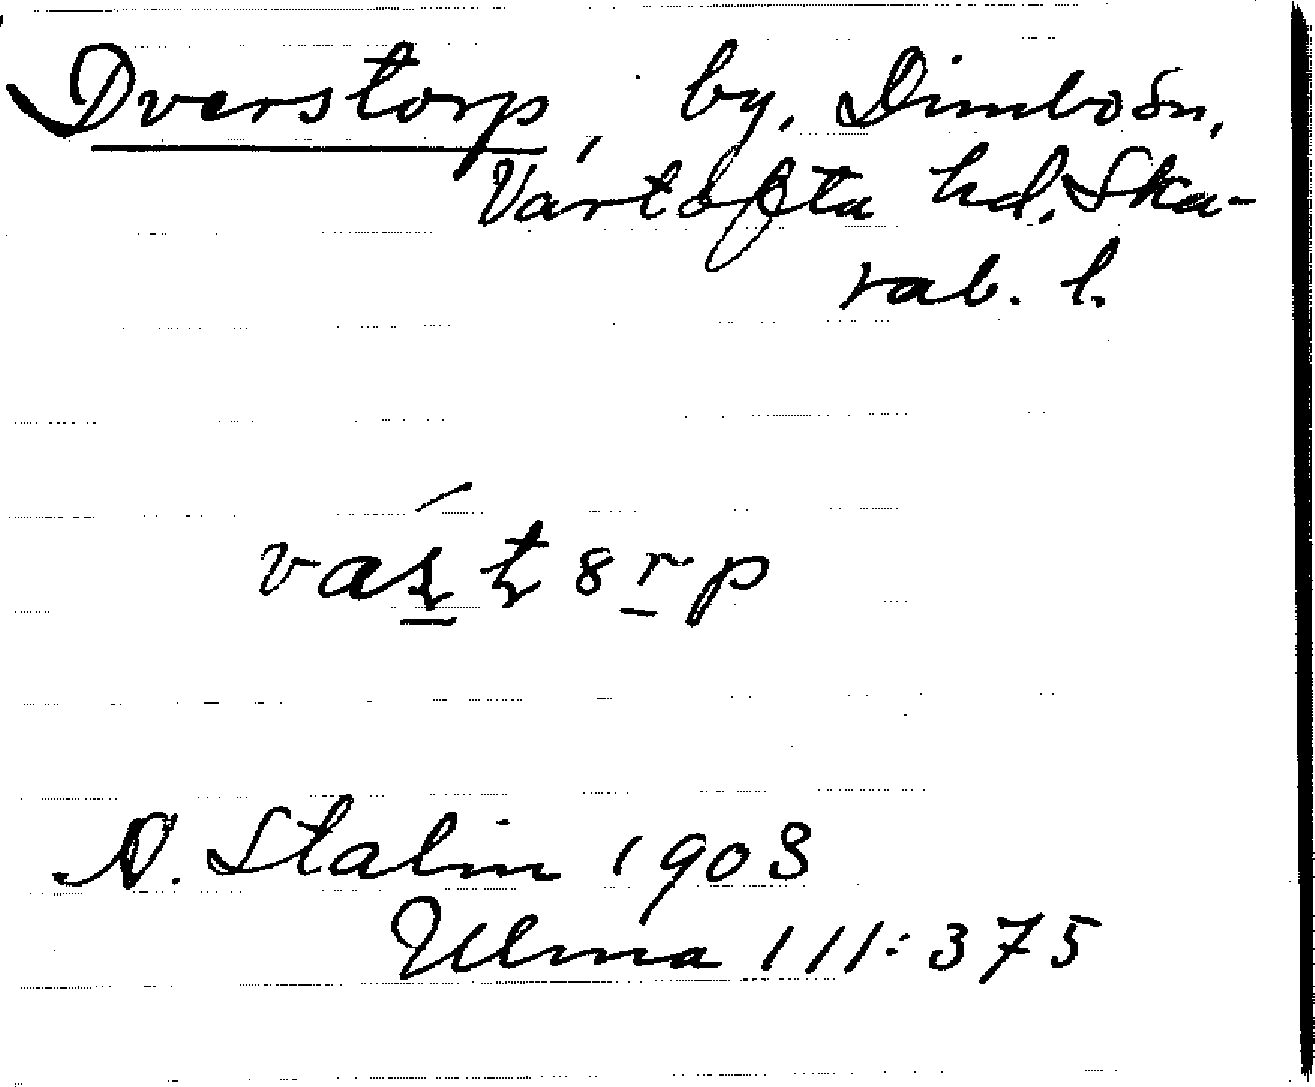 Dverstorp, by, Dimbo sn,
Vartofta hd. Ska-
rab. l.
N. Stalin 1903
Ulma 111:375